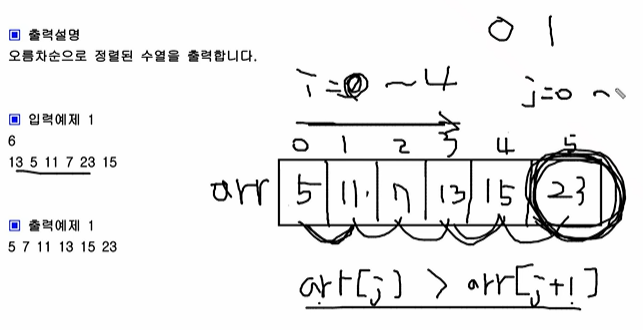 ▣ 출력설명
오름차순으로 정렬된 수열을 출력합니다.
▣ 입력예제 1
6
13 5 11 7 23 15
▣ 출력예제 1
5 7 11 13 15 23
0 1
i=0 ~4
j=0 ~
0 1 2 3 4 5
arr 5 11 7 13 15 23
arr[j] > arr[j+1]